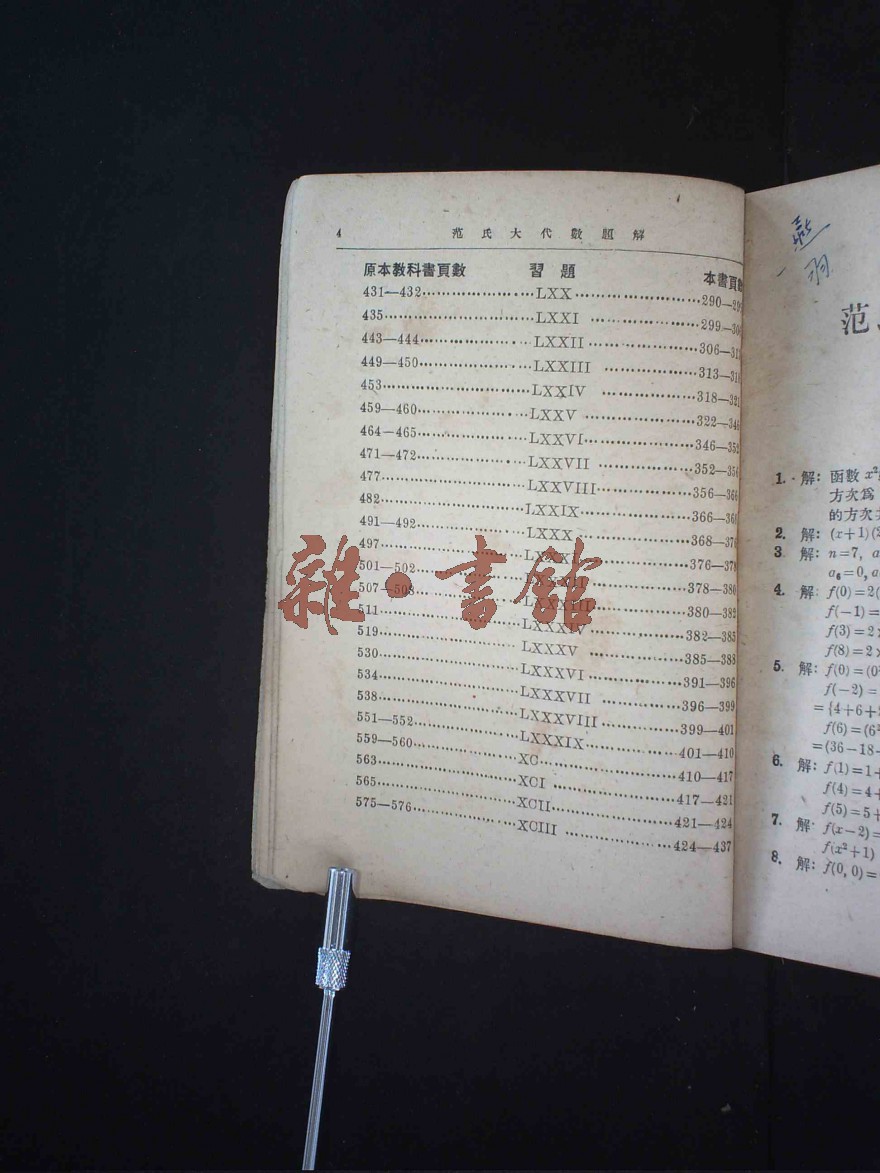 4 范氏大代數題解
原本教科書頁數 習題 本書頁
431—432 LXX 290—
435 LXXI 299—
443—444 LXXII 306—
449—450 LXXIII 313—
453 LXXIV 318—321
459—460 LXXV 322—346
464—465 LXXVI 346—352
471—472 LXXVII 352—356
477 LXXVIII 356—366
482 LXXIX 366—368
491—492 LXXX 368—376
497 LXXXI 376—378
501—502 LXXXII 378—380
507—508 LXXXIII 380—382
511 LXXXIV 382—385
519 LXXXV 385—388
530 LXXXVI 391—396
534 LXXXVII 396—399
538 LXXXVIII 399—401
551—552 LXXXIX 401—410
559—560 XC 410—417
563 XCI 417—421
565 XCII 421—424
575—576 XCIII 424—437
雜·書館
范
1. 解: 函數
方次爲
的方次
2. 解: (x+1)
3 解: n=7, a
a₆=0, a
4. 解 f(0)=2(
f(−1)=
f(3)=2
f(8)=2
5. 解: f(0)=(0
f(−2)=
={4+6+
f(6)=(6
=(36−18−
6. 解: f(1)=1+
f(4)=4+
f(5)=5+
7. 解 f(x−2)=
f(x²+1)
8. 解: f(0,0)=